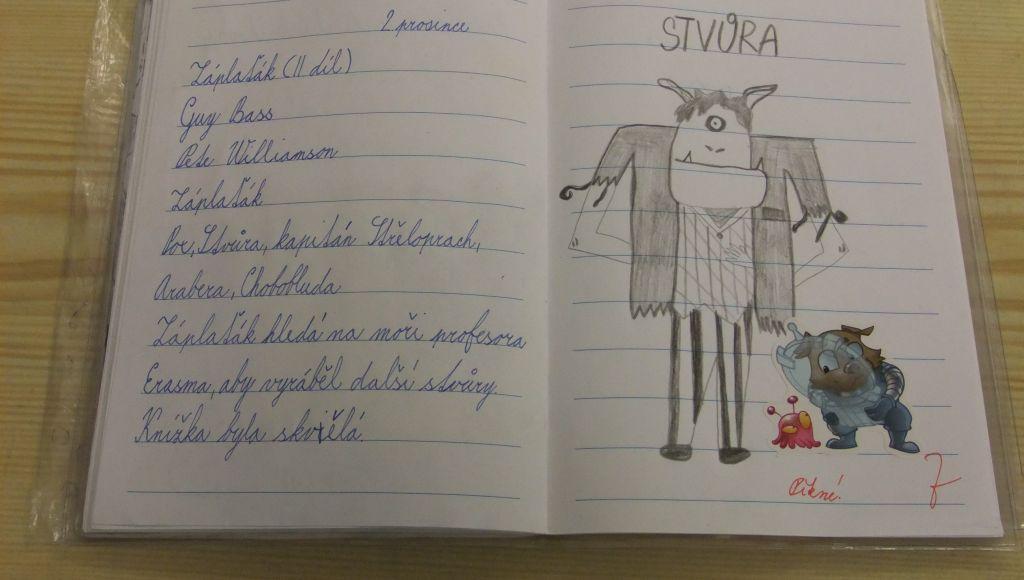 2. prosince
Záplaťák (II díl)
Guy Bass
Pete Williamson
Záplaťák
Por, Stvůra, kapitán Střeloprach,
Arabera, Chobobluda
Záplaťák hledá na moři profesora
Erasma, aby vyráběl další stvůry.
Knížka byla skvělá.
STVŮRA
Pěkné!